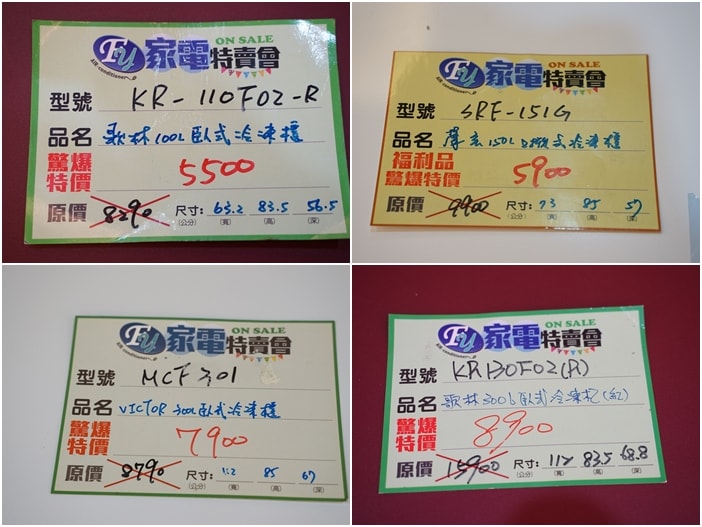 FU 家電特賣會 ON SALE
air-conditioner
型號 KR-110F02-R
品名 歌林100L臥式冷凍櫃
驚爆特價 5500
原價 8290 尺寸: 63.2 83.5 56.5
(公分) (寬) (高) (深)
FU 家電特賣會 ON SALE
air-conditioner
型號 SRF-151G
品名 聲寶150L 式冷凍櫃
福利品
驚爆特價 5900
原價 9900 尺寸: 73 85 57
(公分) (寬) (高) (深)
FU 家電特賣會 ON SALE
air-conditioner
型號 MCF301
品名 VICTOR 300L臥式冷凍櫃
驚爆特價 7900
原價 8790 尺寸: 112 85 67
(公分) (寬) (高) (深)
FU 家電特賣會 ON SALE
air-conditioner
型號 KR130F02(R)
品名 歌林300L臥式冷凍櫃(紅)
驚爆特價 8900
原價 15900 尺寸: 112 83.5 68.8
(公分) (寬) (高) (深)